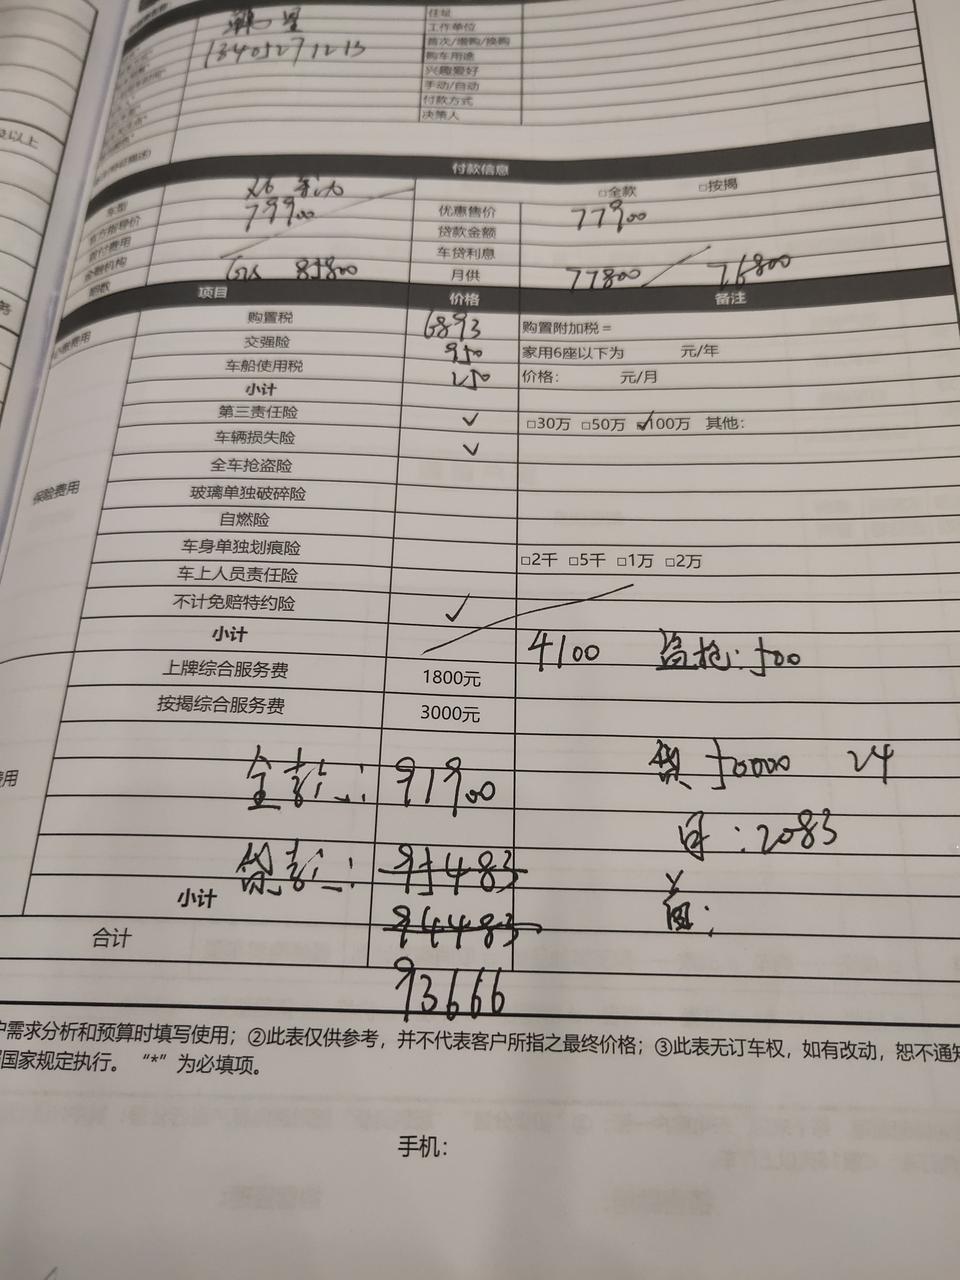 住址
工作单位
首次/增购/换购
13405271213
购车用途
兴趣爱好
手动/自动
付款方式
决策人
及以上
付款信息
车型
□全款 □按揭
官方指导价 79900 优惠售价 77900
首付费用 贷款金额
金融机构 车贷利息
期数 85800 月供 77800 76800
项目 价格 备注
必缴费用
购置税 6893 购置附加税=
交强险 950 家用6座以下为 元/年
车船使用税 250 价格: 元/月
小计
保险费用
第三责任险 ✓ □30万 □50万 ☑100万 其他:
车辆损失险 ✓
全车抢盗险
玻璃单独破碎险
自燃险
车身单独划痕险 □2千 □5千 □1万 □2万
车上人员责任险
不计免赔特约险 ✓
小计 4100 盗抢:500
上牌综合服务费 1800元
按揭综合服务费 3000元
用
全款: 91900 贷50000 24
月:2083
贷款: 95483
小计
94483
合计
93666
户需求分析和预算时填写使用;②此表仅供参考,并不代表客户所指之最终价格;③此表无订车权,如有改动,恕不通知
国家规定执行。 “*”为必填项。
手机: